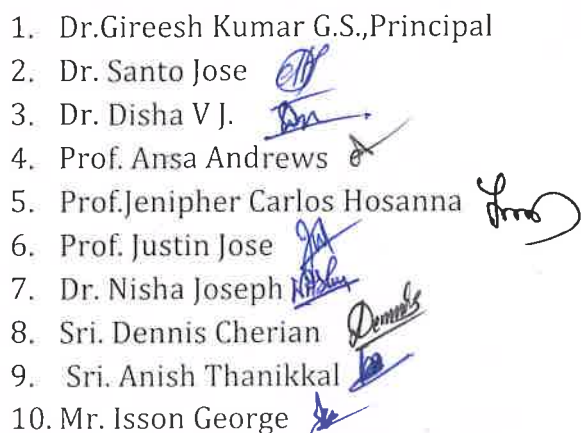 1. Dr.Gireesh Kumar G.S.,Principal
2. Dr. Santo Jose
3. Dr. Disha V J.
4. Prof. Ansa Andrews
5. Prof.Jenipher Carlos Hosanna
6. Prof. Justin Jose
7. Dr. Nisha Joseph
8. Sri. Dennis Cherian Dennis
9. Sri. Anish Thanikkal
10. Mr. Isson George